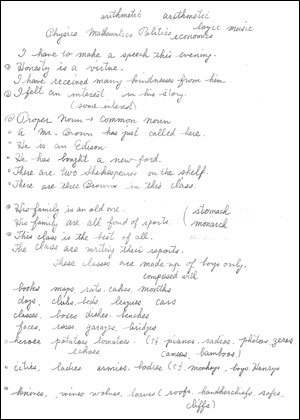 arithmetic arithmetic
logic music
Physics Mathematics Politics economics
I have to make a speech this evening.
Honesty is a virtue.
I have received many kindnesses from him
I felt an interest in his story.
(some interest)
Proper Noun → common noun
a Mr. Brown has just called here.
He is an Edison.
He has bought a new ford.
There are two Shakespeares on the shelf.
There are three Browns in this class.
His family is an old one. (stomach
His family are all fond of sports. monarch
This class is the best of all.
The class are writing their reports.
These classes are made up of boys only.
composed with
books maps, cats, cakes, months
dogs, clubs, beds, leagues, cars
classes, boxes dishes, benches
faces, roses, garages, bridges
heroes potatoes tomatoes. (cf. pianos, radios, photos, zeros
echoes bamboos)
cities, ladies armies, bodies (cf. monkeys, boys, Henrys
knives, wives wolves, leaves (roofs handkerchiefs, safes,
cliffs)